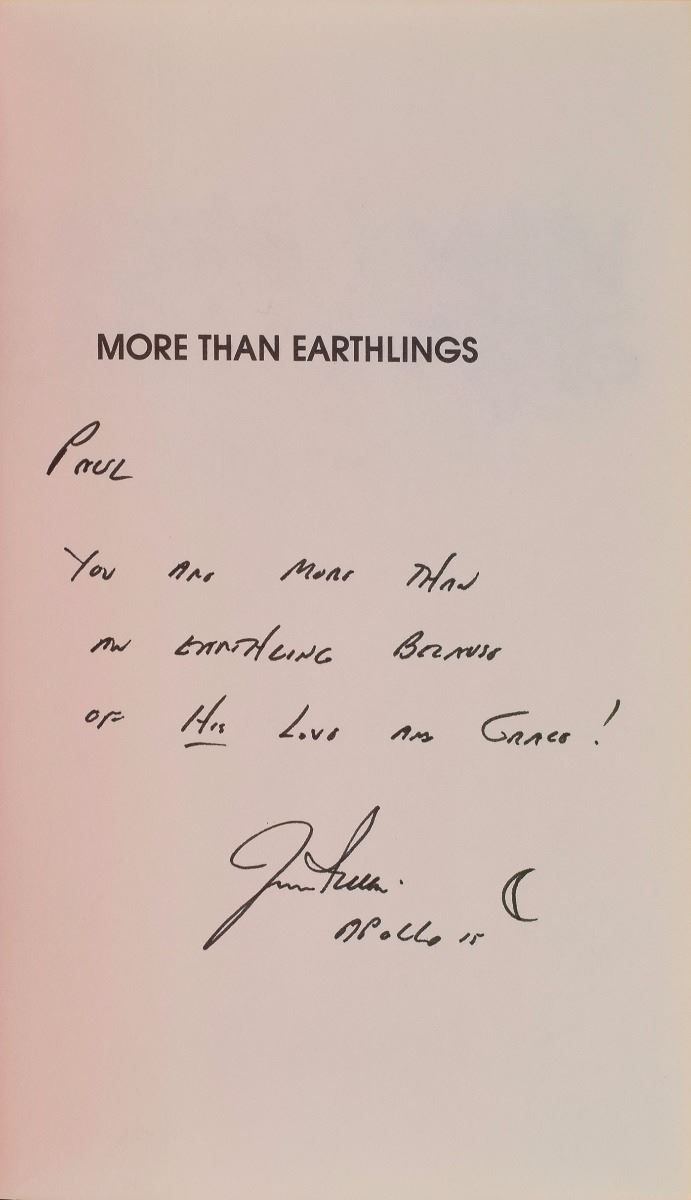 MORE THAN EARTHLINGS
Paul
You Are More Than
an Earthling Because
of His Love and Grace!
Jim Irwin
Apollo 15